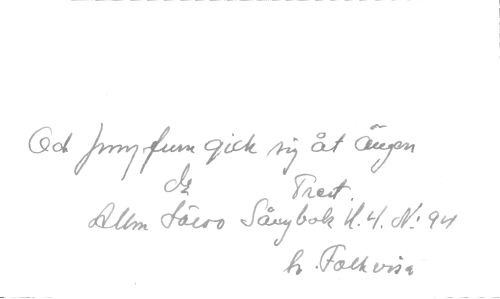 Och Jungfrun gick sig åt ängen
Trest.
Allm Läros Sångbok H.4. N: 94
Folkvisa